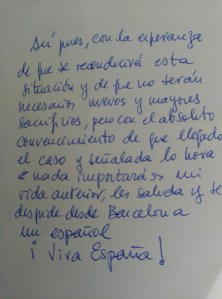 Así pues, con la esperanza
de que se reconducirá esta
situación y de que no serán
necesarios nuevos y mayores
sacrificios, pero con el absoluto
convencimiento de que llegado
el caso y señalada la hora
nada importará mi
vida anterior, les saluda y se
despide desde Barcelona
un español
¡Viva España!